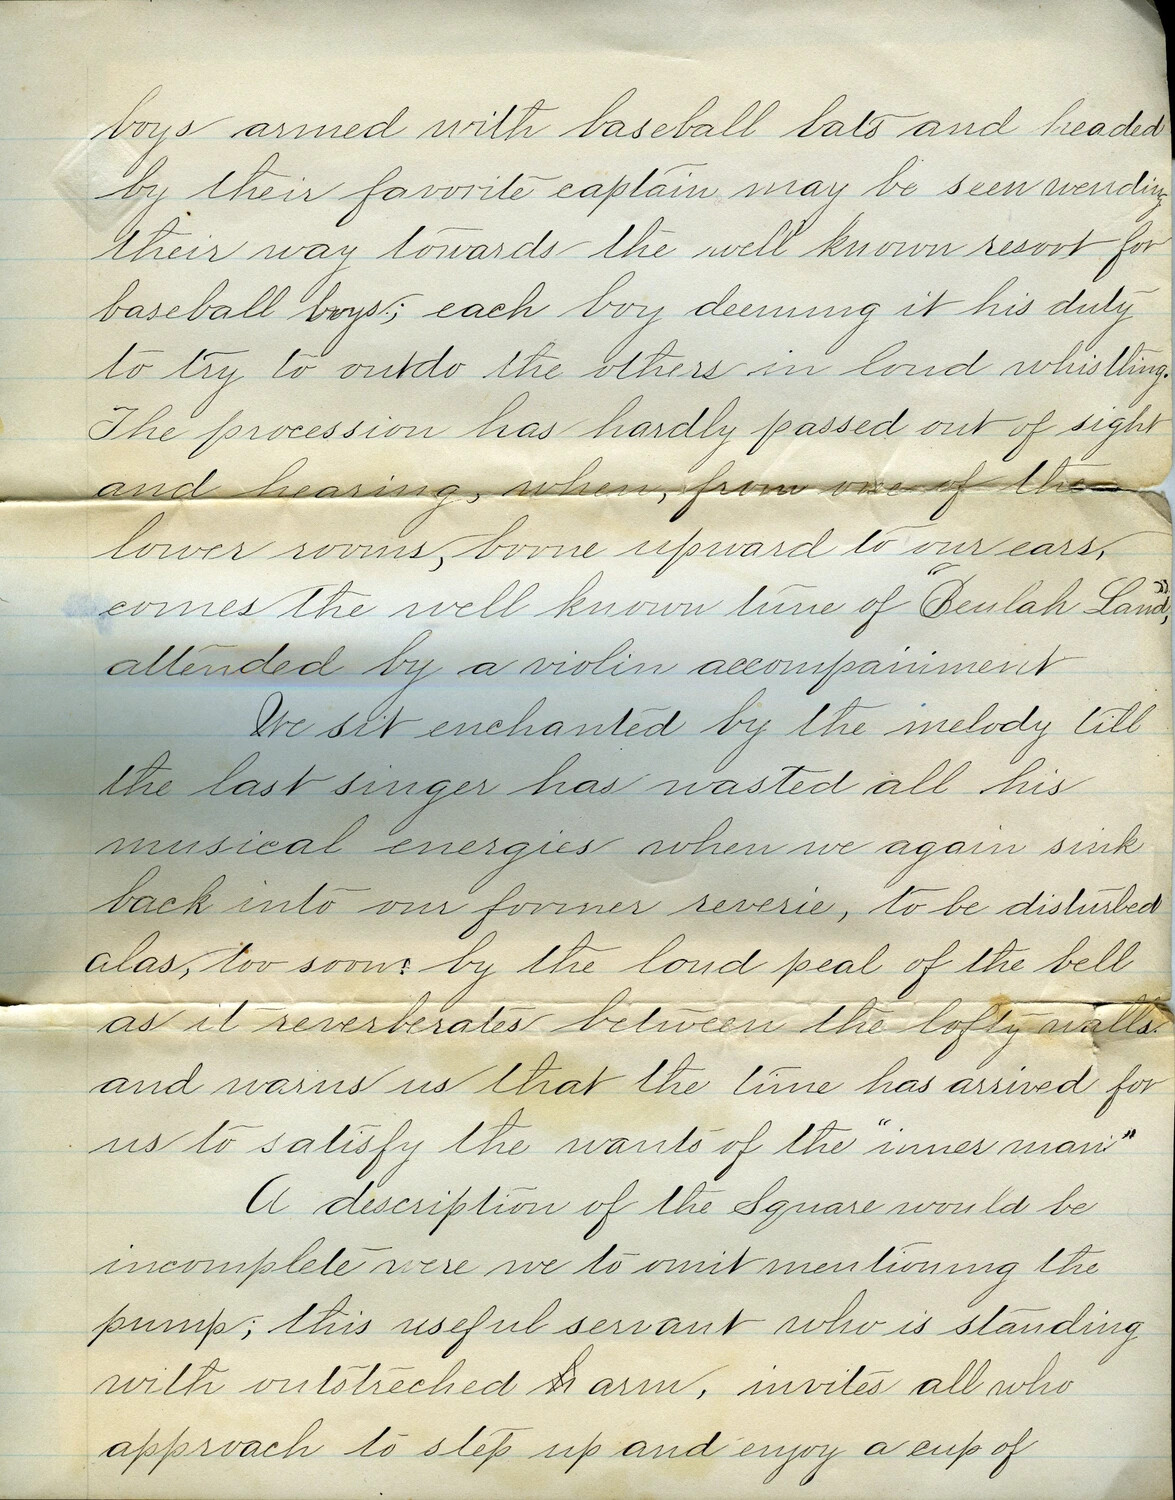 boys armed with baseball bats and headed
by their favorite captain may be seen wending
their way towards the well known resort for
baseball boys; each boy deeming it his duty
to try to outdo the others in loud whistling.
The procession has hardly passed out of sight
and hearing, when, from one of the
lower rooms, borne upward to our ears,
comes the well known tune of "Beulah Land",
attended by a violin accompainiment
We sit enchanted by the melody till
the last singer has wasted all his
musical energies when we again sink
back into our former reverie, to be disturbed
alas, too soon: by the loud peal of the bell
as it reverberates between the lofty walls.
and warns us that the time has arrived for
us to satisfy the wants of the "inner man."
A description of the Square would be
incomplete were we to omit mentioning the
pump; this useful servant who is standing
with outstreched arm, invites all who
approach to step up and enjoy a cup of